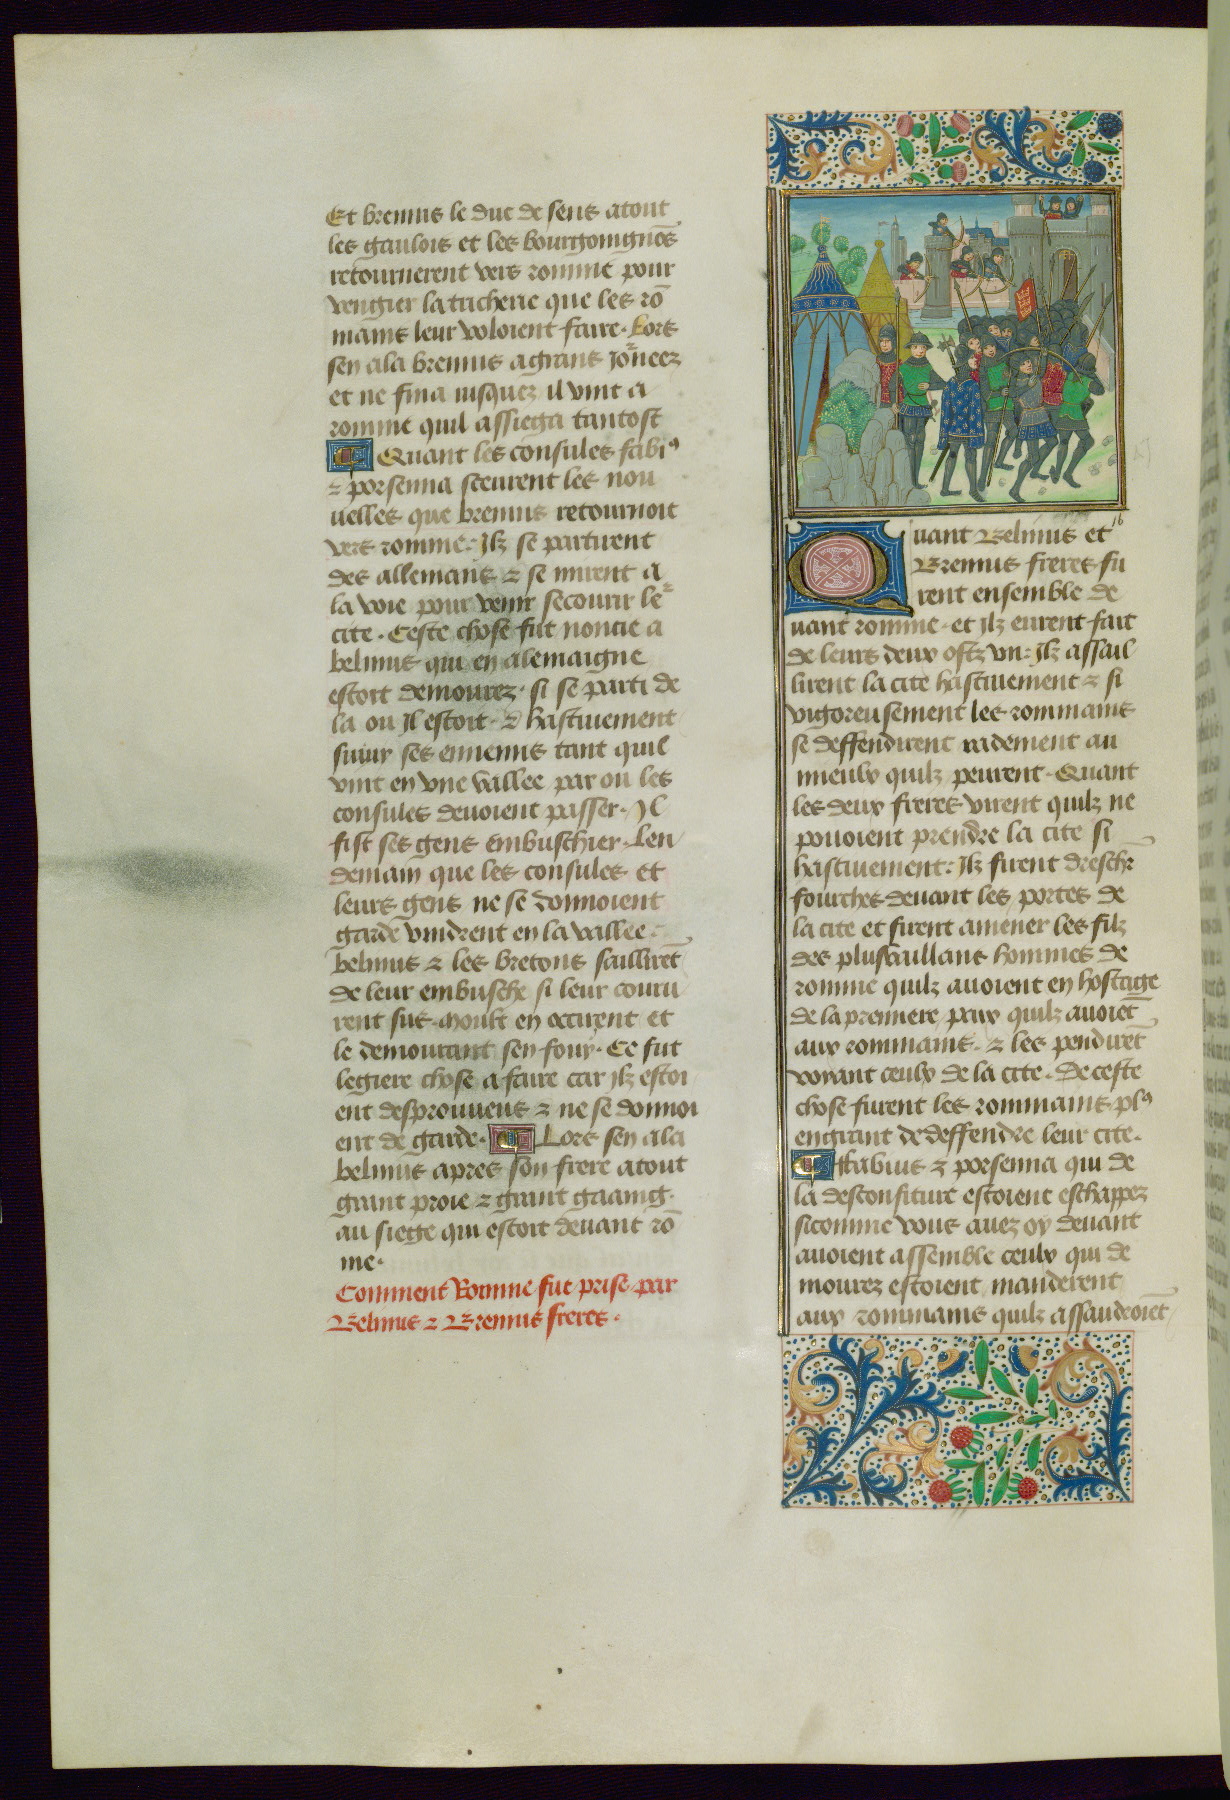 Et brennus le duc de sens atout
les gaulois et les bourgoingnōs
retournerent vers romme pour
vengier la tricherie que les rō
mains leur voloient faire. Lors
sen ala brennus a grans Jo͛nees
et ne fina iusquez il vint a
romme quil assiega tantost
Quant les consules fabiꝰ
⁊ porsenna sceurent les nou
uelles que brennus retournoit
vers romme: Ilz se partirent
des allemans ⁊ se mirent a
la voie pour venir secourir le
cite. Ceste chose fut noncie a
belinus qui en alemaigne
estoit demourez. si se parti de
la ou Il estoit. ⁊ hastiuement
suiuy ses ennemis tant quil
vint en vne vallee par ou les
consules deuoient passer. Il
fist ses gens embuschier. Len
demain que les consules et
leurs gens ne se donnoient
garde vindrent en la vallee
belinus ⁊ les bretons saillirēt
de leur embusche si leur couru
rent sus. Moult en occirent et
le demourant sen fouy. Ce fut
legiere chose a faire car Ilz estoi
ent despourueus ⁊ ne se donnoi
ent de garde. Lors sen ala
belinus apres son frere atout
grant proie ⁊ grant gaaing.
au siege qui estoit deuant rō
me.
Comment Romme fut prise par
Belinus ⁊ Brennus freres.
16
Quant Belinus et
Brennus freres fu
rent ensemble de
uant romme. et Ilz eurent fait
de leurs deux ostz vn: Ilz assail
lirent la cite hastiuement ⁊ si
vigoreusement les rommains
se deffendirent radement au
mieulx quilz peurent. Quant
les deux freres virent quilz ne
pouoient prendre la cite si
hastiuement: Ilz firent dreschr̄
fourches deuant les portes de
la cite et firent amener les filz
des plusvaillans hommes de
romme quilz auoient en hostage
de la premiere paix quilz auoiēt
aux rommains. ⁊ les pendirēt
voyant ceulx de la cite. De ceste
chose furent les rommains plꝰ
engrant de deffendre leur cite.
Fabius ⁊ porsenna qui de
la desconfiture estoient eschappez
sicomme vous auez oy deuant
auoient assemble ceulx qui de
mourez estoient manderent
aux rommains quilz assaudroiēt